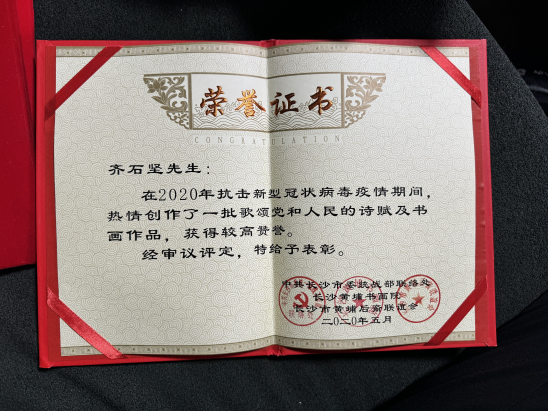 荣誉证书
CONGRATULATION
齐石坚先生：
在2020年抗击新型冠状病毒疫情期间，
热情创作了一批歌颂党和人民的诗赋及书
画作品，获得较高赞誉。
经审议评定，特给予表彰。
中共长沙市委统战部联络处
长沙黄埔书画院
长沙市黄埔后裔联谊会
二〇二〇年五月